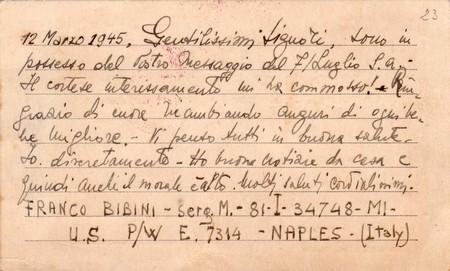 23
12 Marzo 1945, Gentilissimi Signori, sono in
possesso del Vostro Messaggio del 7/Luglio S.a.-
Il cortese interessamento mi ha commosso! - Rin-
grazio di cuore ricambiando auguri di ogni be-
ne migliore. - Vi penso tutti in buona salute -
Io, discretamente - Ho buone notizie da casa e
quindi anche il morale è alto. Molti saluti cordialissimi.
FRANCO BIBINI - Serg. M. - 81-I-34748-MI-
U.S. P/W E. 7314 - NAPLES - (Italy)